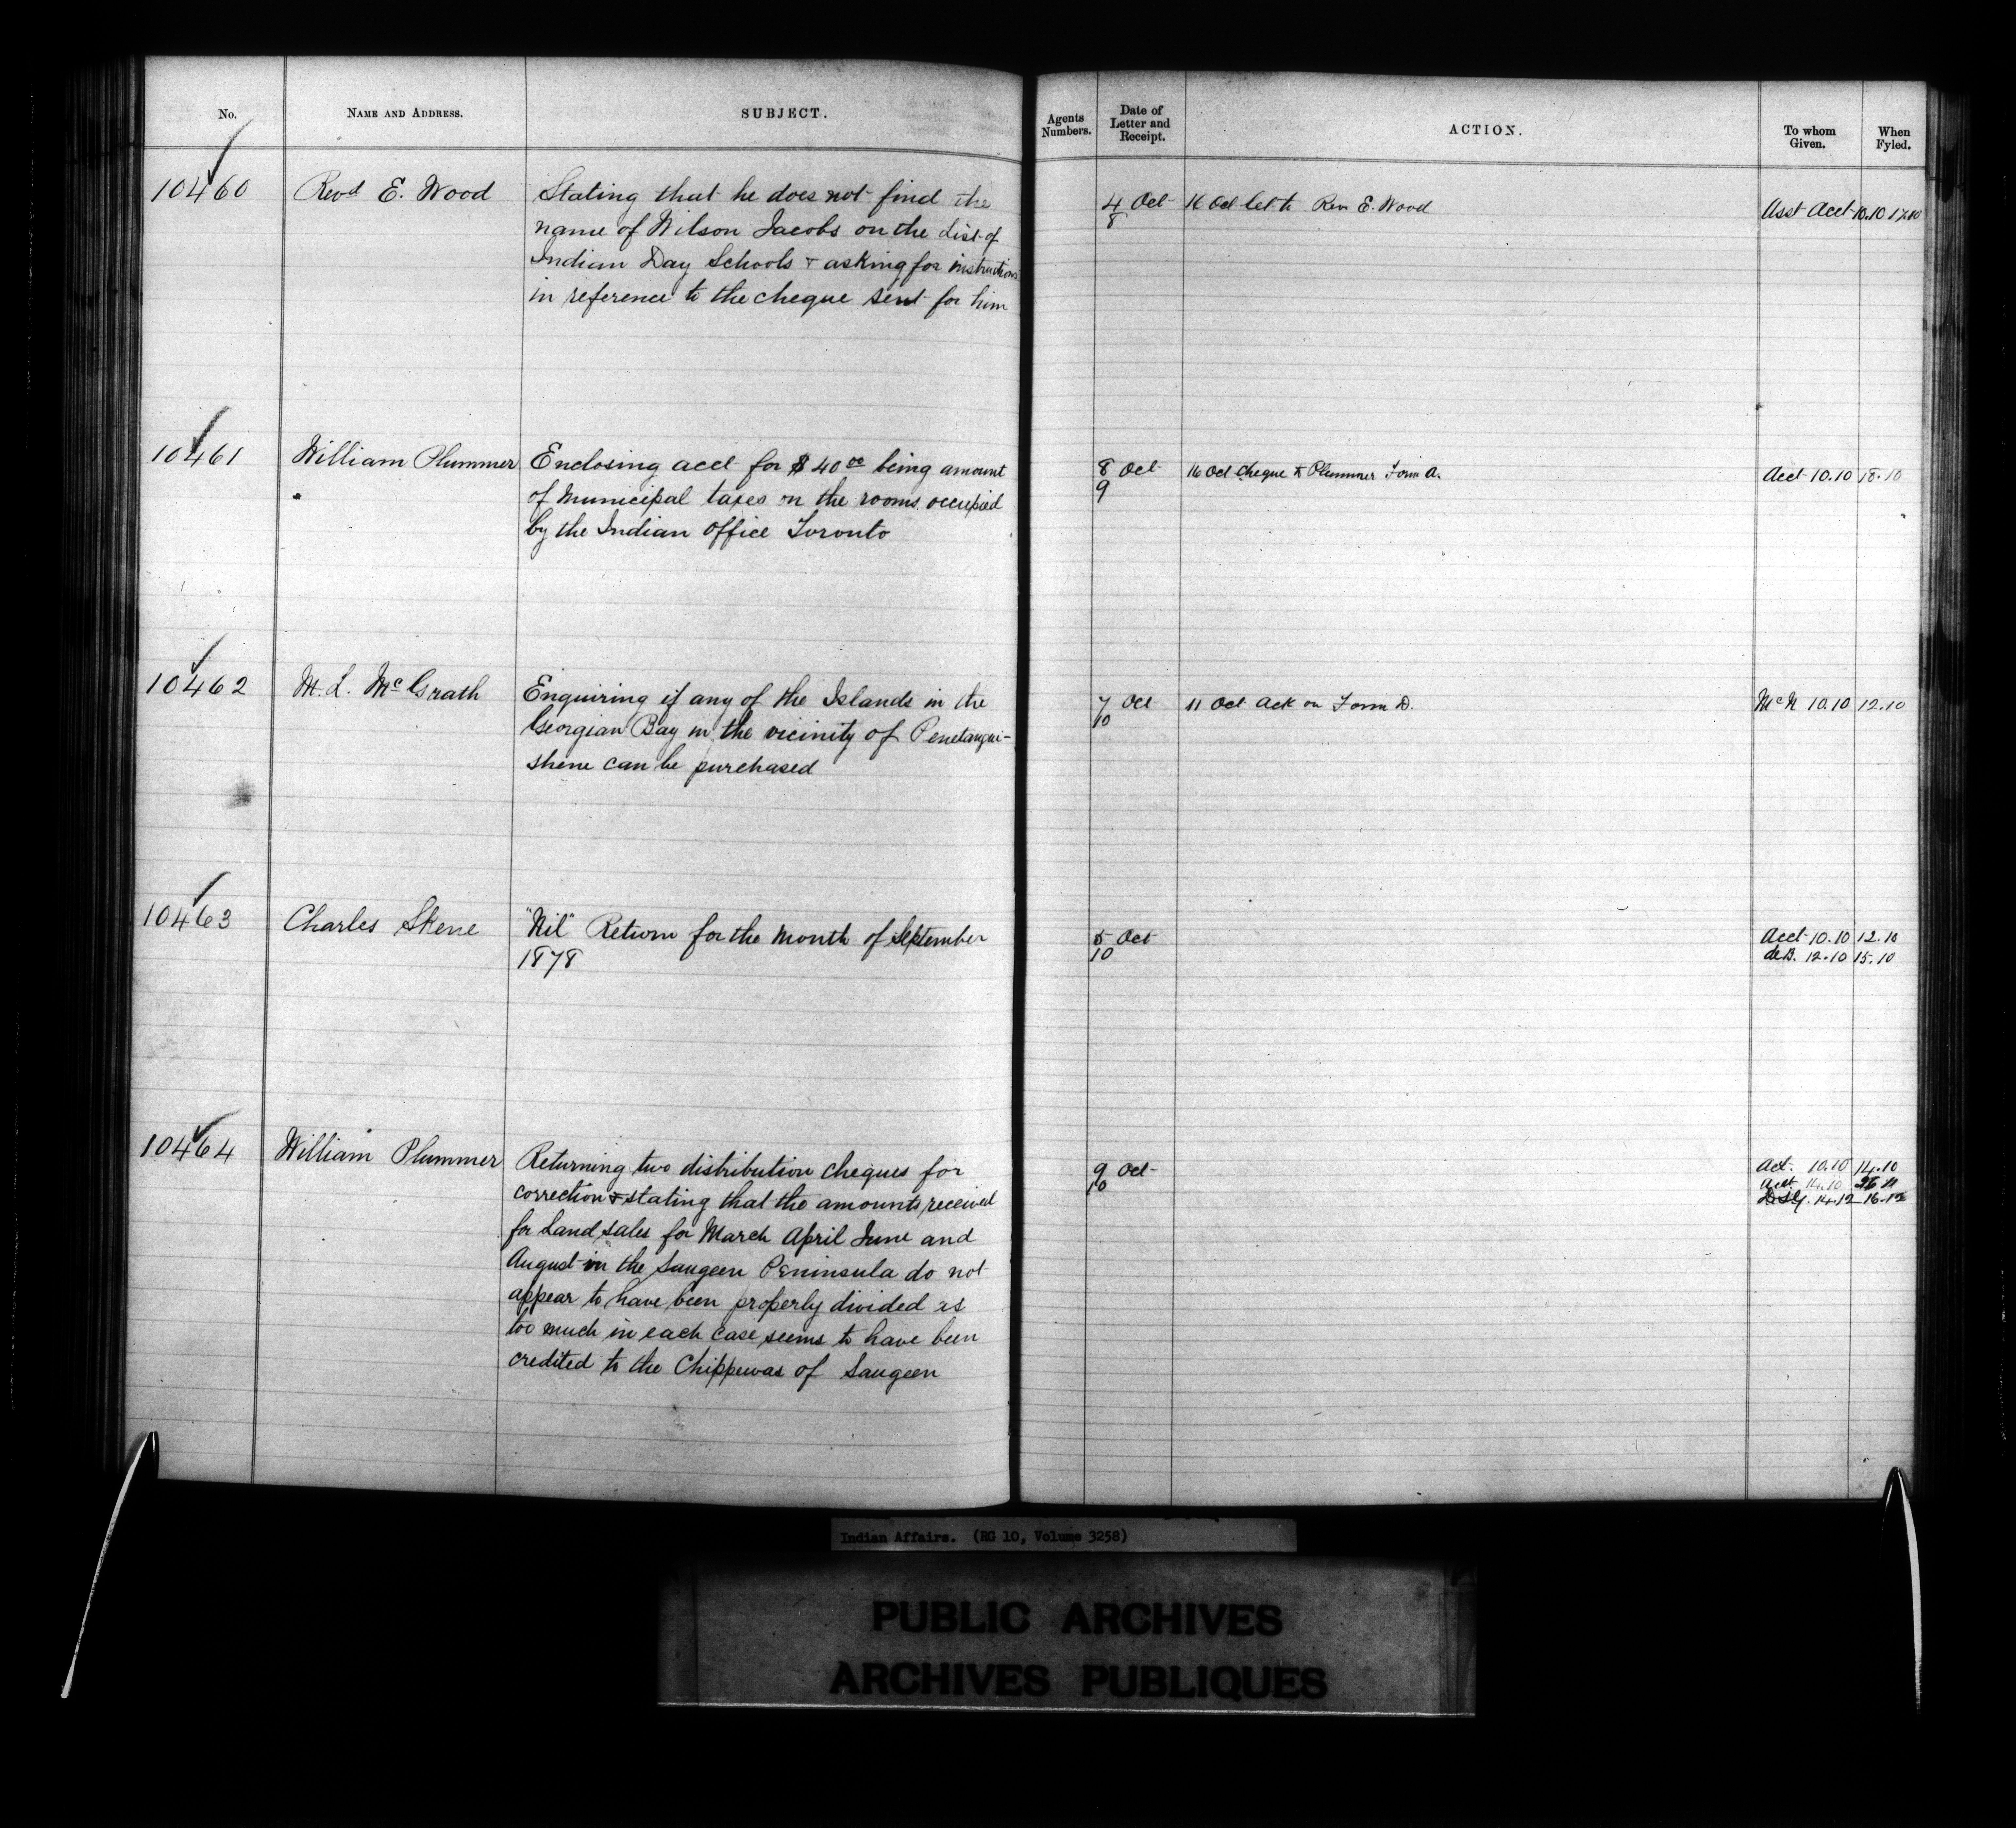 No.
NAME AND ADDRESS.
SUBJECT.
Agents Numbers.
Date of Letter and Receipt.
ACTION.
To whom Given.
When Fyled.
10460
Revd E. Wood
Stating that he does not find the
name of Wilson Jacobs on the List of
Indian Day Schools & asking for instructions
in reference to the cheque sent for him
4 Oct
8
16 Oct let to Rev E. Wood
Asst Acct 10.10 17.10
10461
William Plummer
Enclosing acct for $40 00 being amount
of Municipal taxes on the rooms occupied
by the Indian Office Toronto
8 Oct
9
16 Oct Cheque to Plummer Form A.
Acct 10.10 18.10
10462
M. L. McGrath
Enquiring if any of the Islands in the
Georgian Bay in the vicinity of Penetangui-
shene can be purchased
7 Oct
10
11 Oct Ack on Form D.
McN 10.10 12.10
10463
Charles Skene
"Nil" Return for the Month of September
1878
5 Oct
10
Acct 10.10 12.10
deB. 12.10 15.10
10464
William Plummer
Returning two distribution cheques for
correction & stating that the amounts received
for Land sales for March April June and
August in the Saugeen Peninsula do not
appear to have been properly divided as
too much in each case seems to have been
credited to the Chippewas of Saugeen
9 Oct
10
Act. 10.10 14.10
Acct 14.10
14.12 16.12
Indian Affairs. (RG 10, Volume 3258)
PUBLIC ARCHIVES
ARCHIVES PUBLIQUES